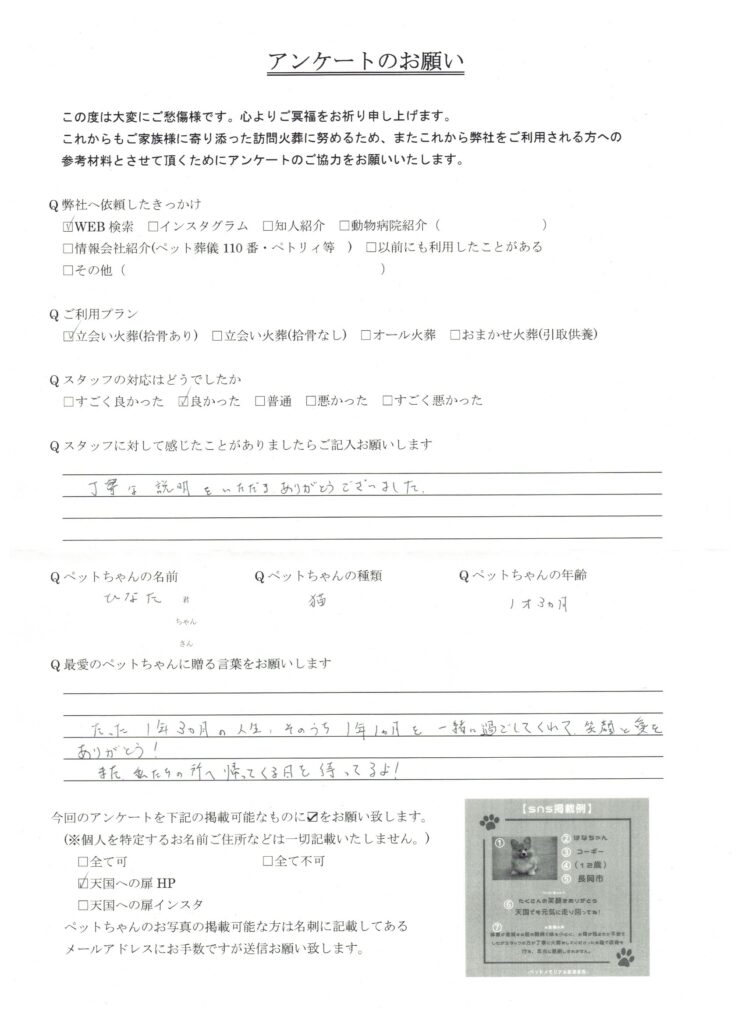 アンケートのお願い
この度は大変にご愁傷様です。心よりご冥福をお祈り申し上げます。
これからもご家族様に寄り添った訪問火葬に努めるため、またこれから弊社をご利用される方への
参考材料とさせて頂くためにアンケートのご協力をお願いいたします。
Q 弊社へ依頼したきっかけ
☑WEB 検索 □インスタグラム □知人紹介 □動物病院紹介（ ）
□情報会社紹介(ペット葬儀 110 番・ペトリィ等 ) □以前にも利用したことがある
□その他（ ）
Q ご利用プラン
☑立会い火葬(拾骨あり) □立会い火葬(拾骨なし) □オール火葬 □おまかせ火葬(引取供養)
Q スタッフの対応はどうでしたか
□すごく良かった ☑良かった □普通 □悪かった □すごく悪かった
Q スタッフに対して感じたことがありましたらご記入お願いします
丁寧な説明をいただきありがとうございました。
Q ペットちゃんの名前 Q ペットちゃんの種類 Q ペットちゃんの年齢
ひなた 君 猫 1才3ヵ月
ちゃん
さん
Q 最愛のペットちゃんに贈る言葉をお願いします
たった1年3ヵ月の人生、そのうち1年1ヵ月を一緒に過ごしてくれて、笑顔と愛を
ありがとう!
また私たちの所へ帰ってくる日を待ってるよ!
今回のアンケートを下記の掲載可能なものに☑をお願い致します。
(※個人を特定するお名前ご住所などは一切記載いたしません。)
□全て可 □全て不可
☑天国への扉 HP
□天国への扉インスタ
ペットちゃんのお写真の掲載可能な方は名刺に記載してある
メールアドレスにお手数ですが送信お願い致します。
【sns掲載例】
① ② はなちゃん
③ コーギー
④ (12歳)
⑤ 長岡市
⑥ たくさんの笑顔をありがとう
天国でも元気に走り回ってね!
⑦